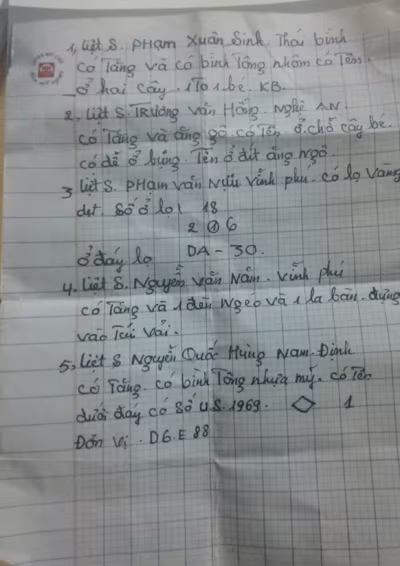 1, Liệt S. PHạm Xuân Sinh. Thái bình
có Tăng và có bình Tông nhôm có Tên.
ở hai cây. 1 To 1 bé. KB.
2. Liệt S. TRương văn Hồng. Nghệ AN.
có Tăng và ăng gô có Tên ở chỗ cây bé.
có dê ở bụng. Tên ở đít ăng ngô.
3 Liệt S. PHạm văn Nựu vĩnh phu. có lọ vàng
dẹt. Số ở lọ 18
2 ① 6
ở đáy lọ DA - 30.
4. Liệt S. Nguyễn văn Năm. Vĩnh phú
có Tăng và 1 đèn Ngeo và 1 la bàn. đựng
vào Túi vải.
5, Liệt S Nguyễn Quốc Hùng Nam-Định
có Tăng. có bình Tông nhựa mỹ. có Tên
dưới đáy có Số U.S. 1969. ◇ 1
Đơn vị. D6. E 88